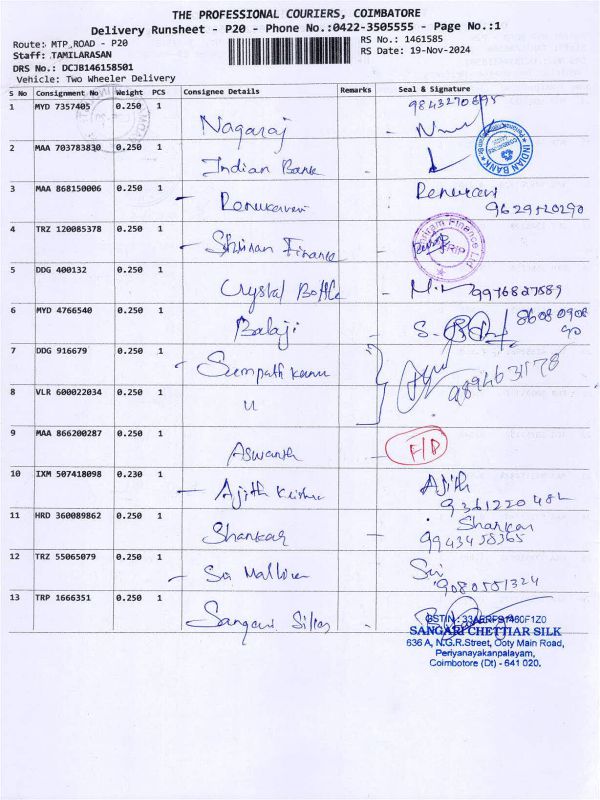 THE PROFESSIONAL COURIERS, COIMBATORE
Delivery Runsheet - P20 - Phone No.:0422-3505555 - Page No.:1
Route: MTP,ROAD - P20
RS No.: 1461585
Staff: TAMILARASAN
RS Date: 19-Nov-2024
DRS No.: DCJB146158501
Vehicle: Two Wheeler Delivery
S No Consignment No Weight PCS Consignee Details Remarks Seal & Signature
1 MYD 7357405 0.250 1 Nagaraj
2 MAA 703783830 0.250 1 Indian Bank
INDIAN BANK
3 MAA 868150006 0.250 1 9629520290
4 TRZ 120085378 0.250 1 Shriram Finance
Shriram Finance Ltd
5 DDG 400132 0.250 1 Crystal Bottle 9976827589
6 MYD 4766540 0.250 1 Balaji
7 DDG 916679 0.250 1
8 VLR 600022034 0.250 1 u
9 MAA 866200287 0.250 1 Aswanth
10 IXM 507418098 0.230 1 Ajith Krishna Ajith
11 HRD 360089862 0.250 1 Shankar Shankar
9943458365
12 TRZ 55065079 0.250 1 Sri
9080551324
13 TRP 1666351 0.250 1
SANGARI CHETTIAR SILK
636 A, N.G.R.Street, Ooty Main Road,
Periyanayakanpalayam,
Coimbotore (Dt) - 641 020.